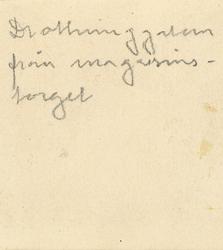 Drottninggatan
från magasins-
torget